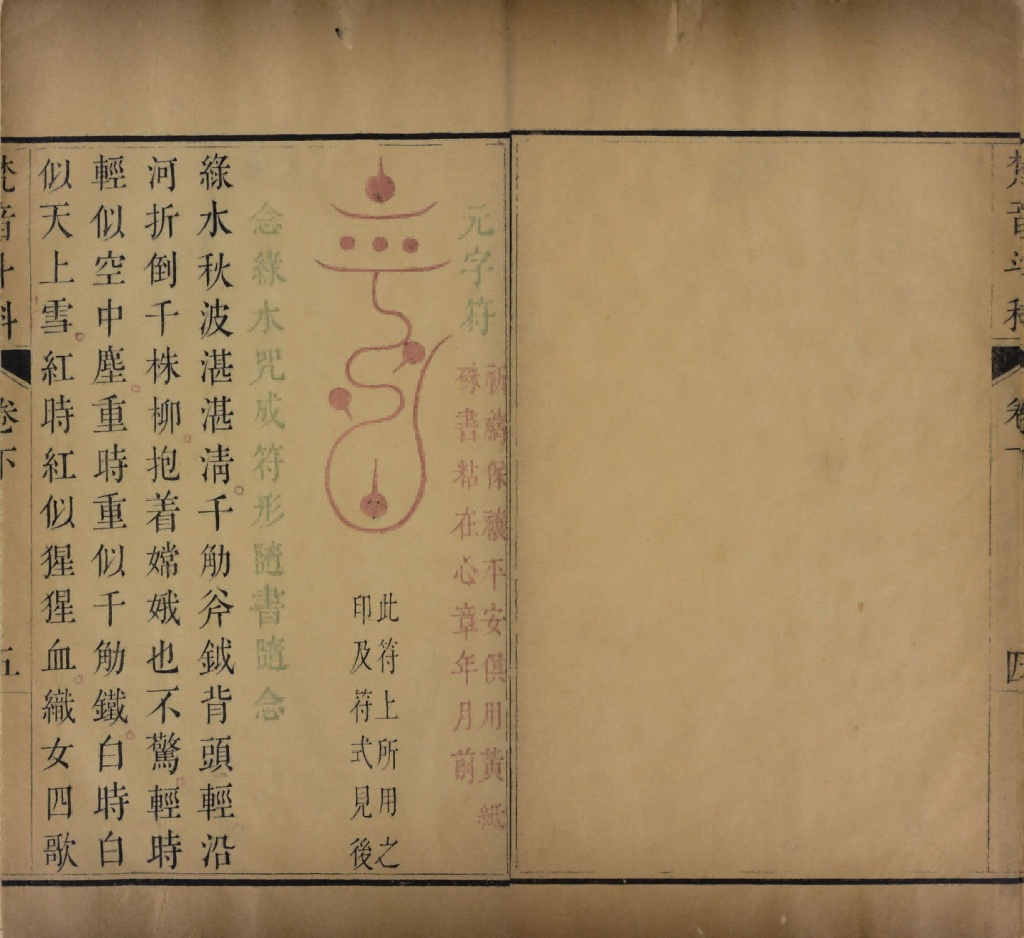 梵音斗科 卷下 四
元字符
祈禱保禳平安俱用黃紙
硃書粘在心章年月前
此符上所用之
印及符式見後
念綠水咒成符形隨書隨念
綠水秋波湛湛清千觔斧鉞背頭輕沿
河折倒千株柳抱着嫦娥也不驚輕時
輕似空中塵重時重似千觔鐵白時白
似天上雪紅時紅似猩猩血織女四歌
梵音斗科 卷下 五